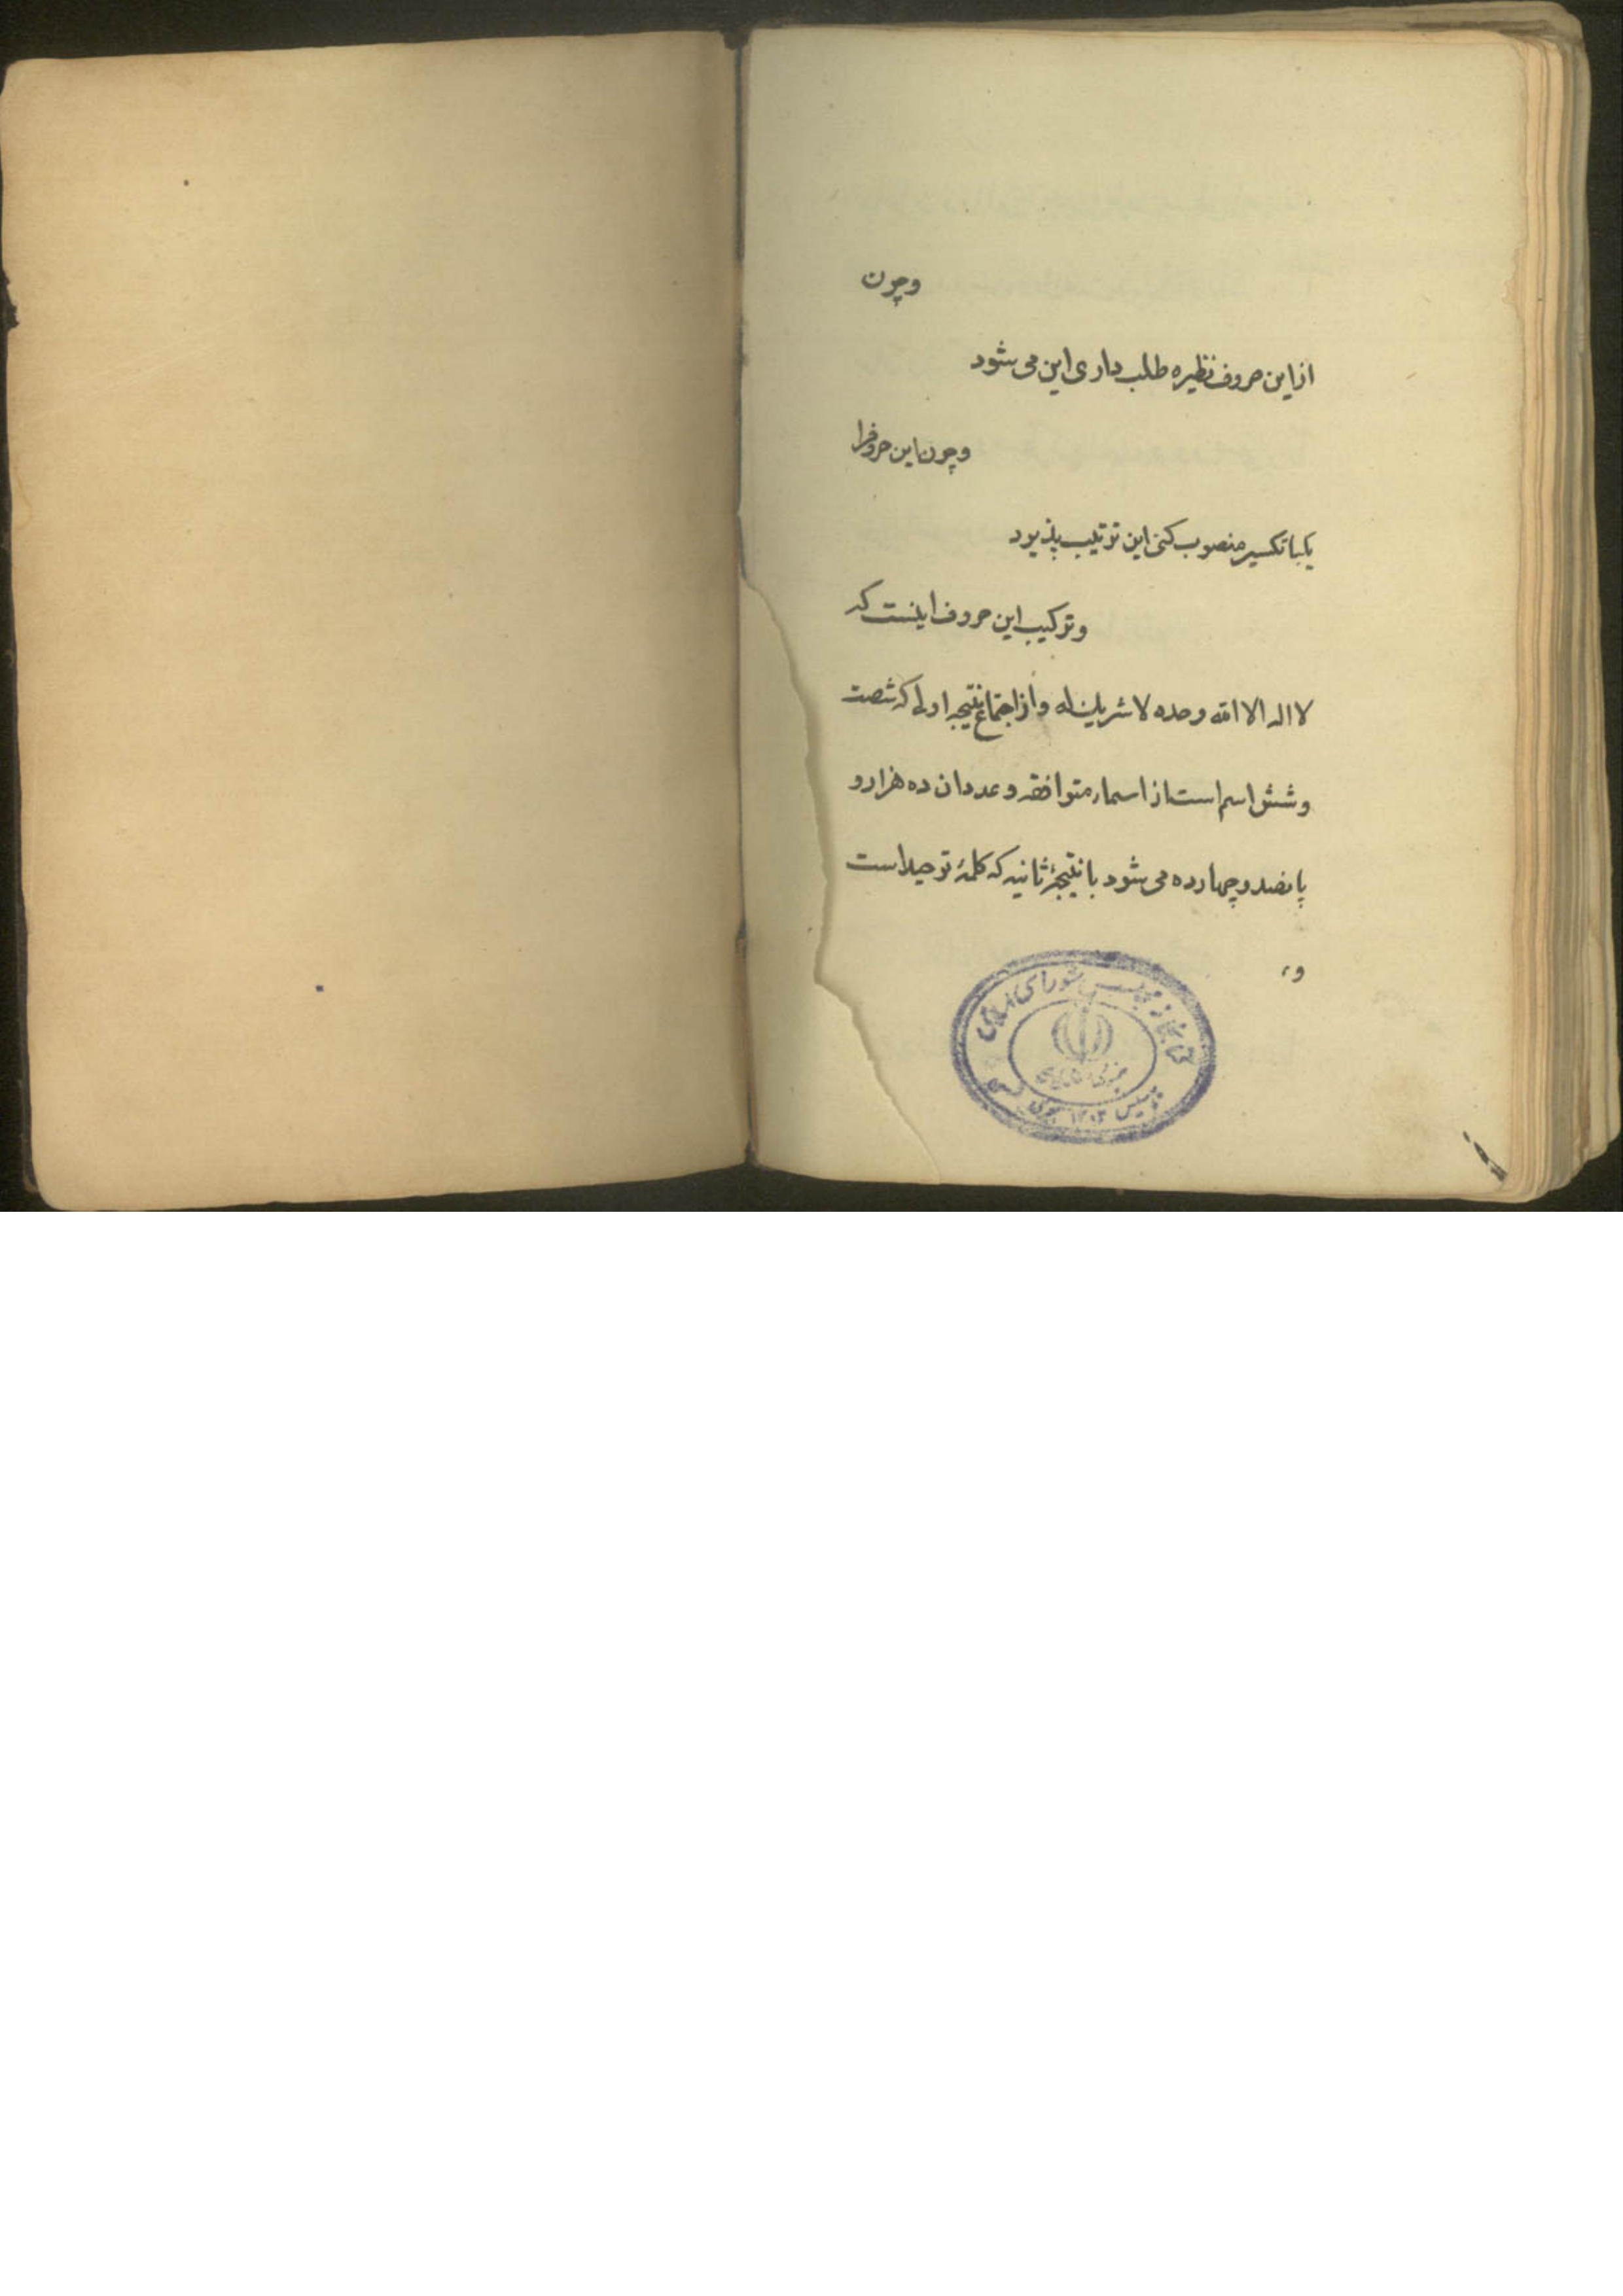 وچون
ازاین حروف نظیره طلب داری این می شود
وچون این حروفرا
یکبا تکسیر منصوب کنی این ترتیب پذیرد
وترکیب این حروف اینست که
لا اله الا الله وحده لا شریک له واز اجتماع نتیجه اولی که شصت
وشش اسم است از اسماء متوافقه وعدد ان ده هزار و
پانصد وچهارده می شود با نتیجهٔ ثانیه که کلمهٔ توحید است
و
کتابخانه مجلس شورای اسلامی
تأسیس ۱۳۰۲ هجری شمسی